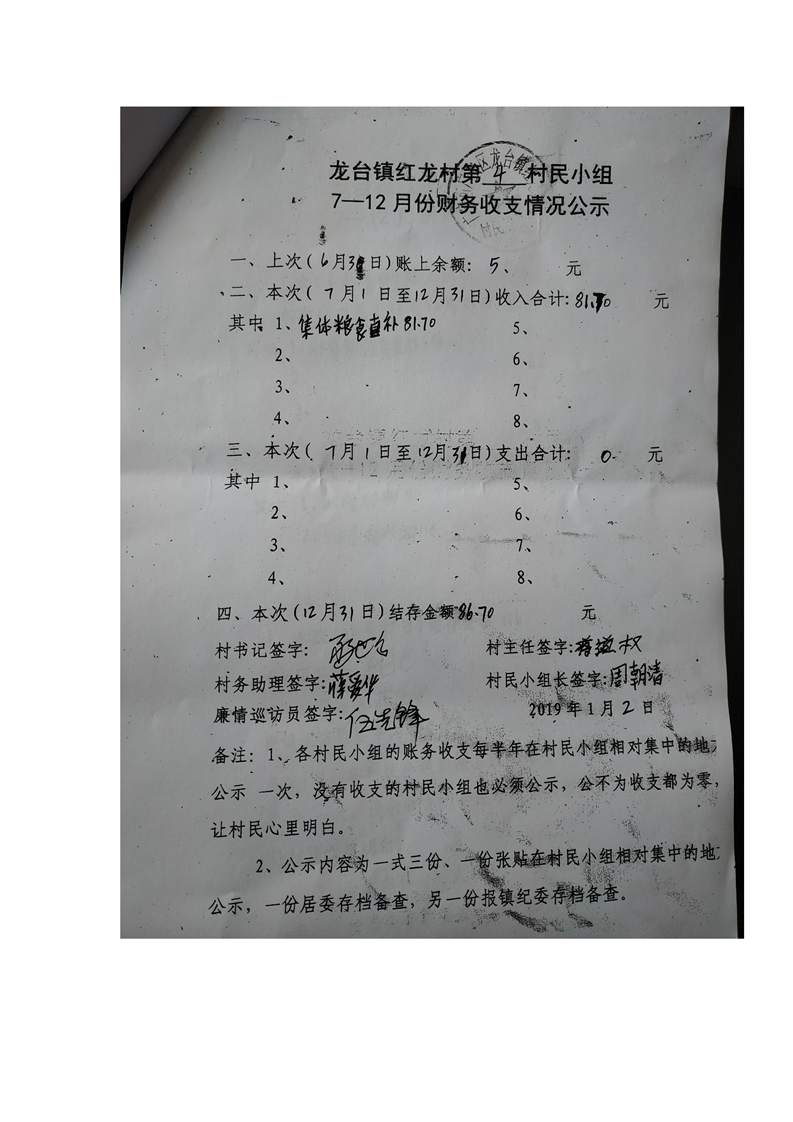 龙台镇红龙村第4村民小组
7—12月份财务收支情况公示
一、上次(6月3日)账上余额: 5、 元
二、本次(7月1日至12月31日)收入合计: 81.70 元
其中 1、集体粮食直补81.70 5、
2、 6、
3、 7、
4、 8、
三、本次(7月1日至12月31日)支出合计: 0. 元
其中 1、 5、
2、 6、
3、 7、
4、 8、
四、本次(12月31日)结存金额86.70 元
村书记签字: 村主任签字: 权
村务助理签字:蒋 华 村民小组长签字:周朝清
廉情巡访员签字:伍先锋 2019年1月2日
备注: 1、各村民小组的账务收支每半年在村民小组相对集中的地
公示 一次，没有收支的村民小组也必须公示，公不为收支都为零，
让村民心里明白。
2、公示内容为一式三份、一份张贴在村民小组相对集中的地
公示，一份居委存档备查，另一份报镇纪委存档备查。